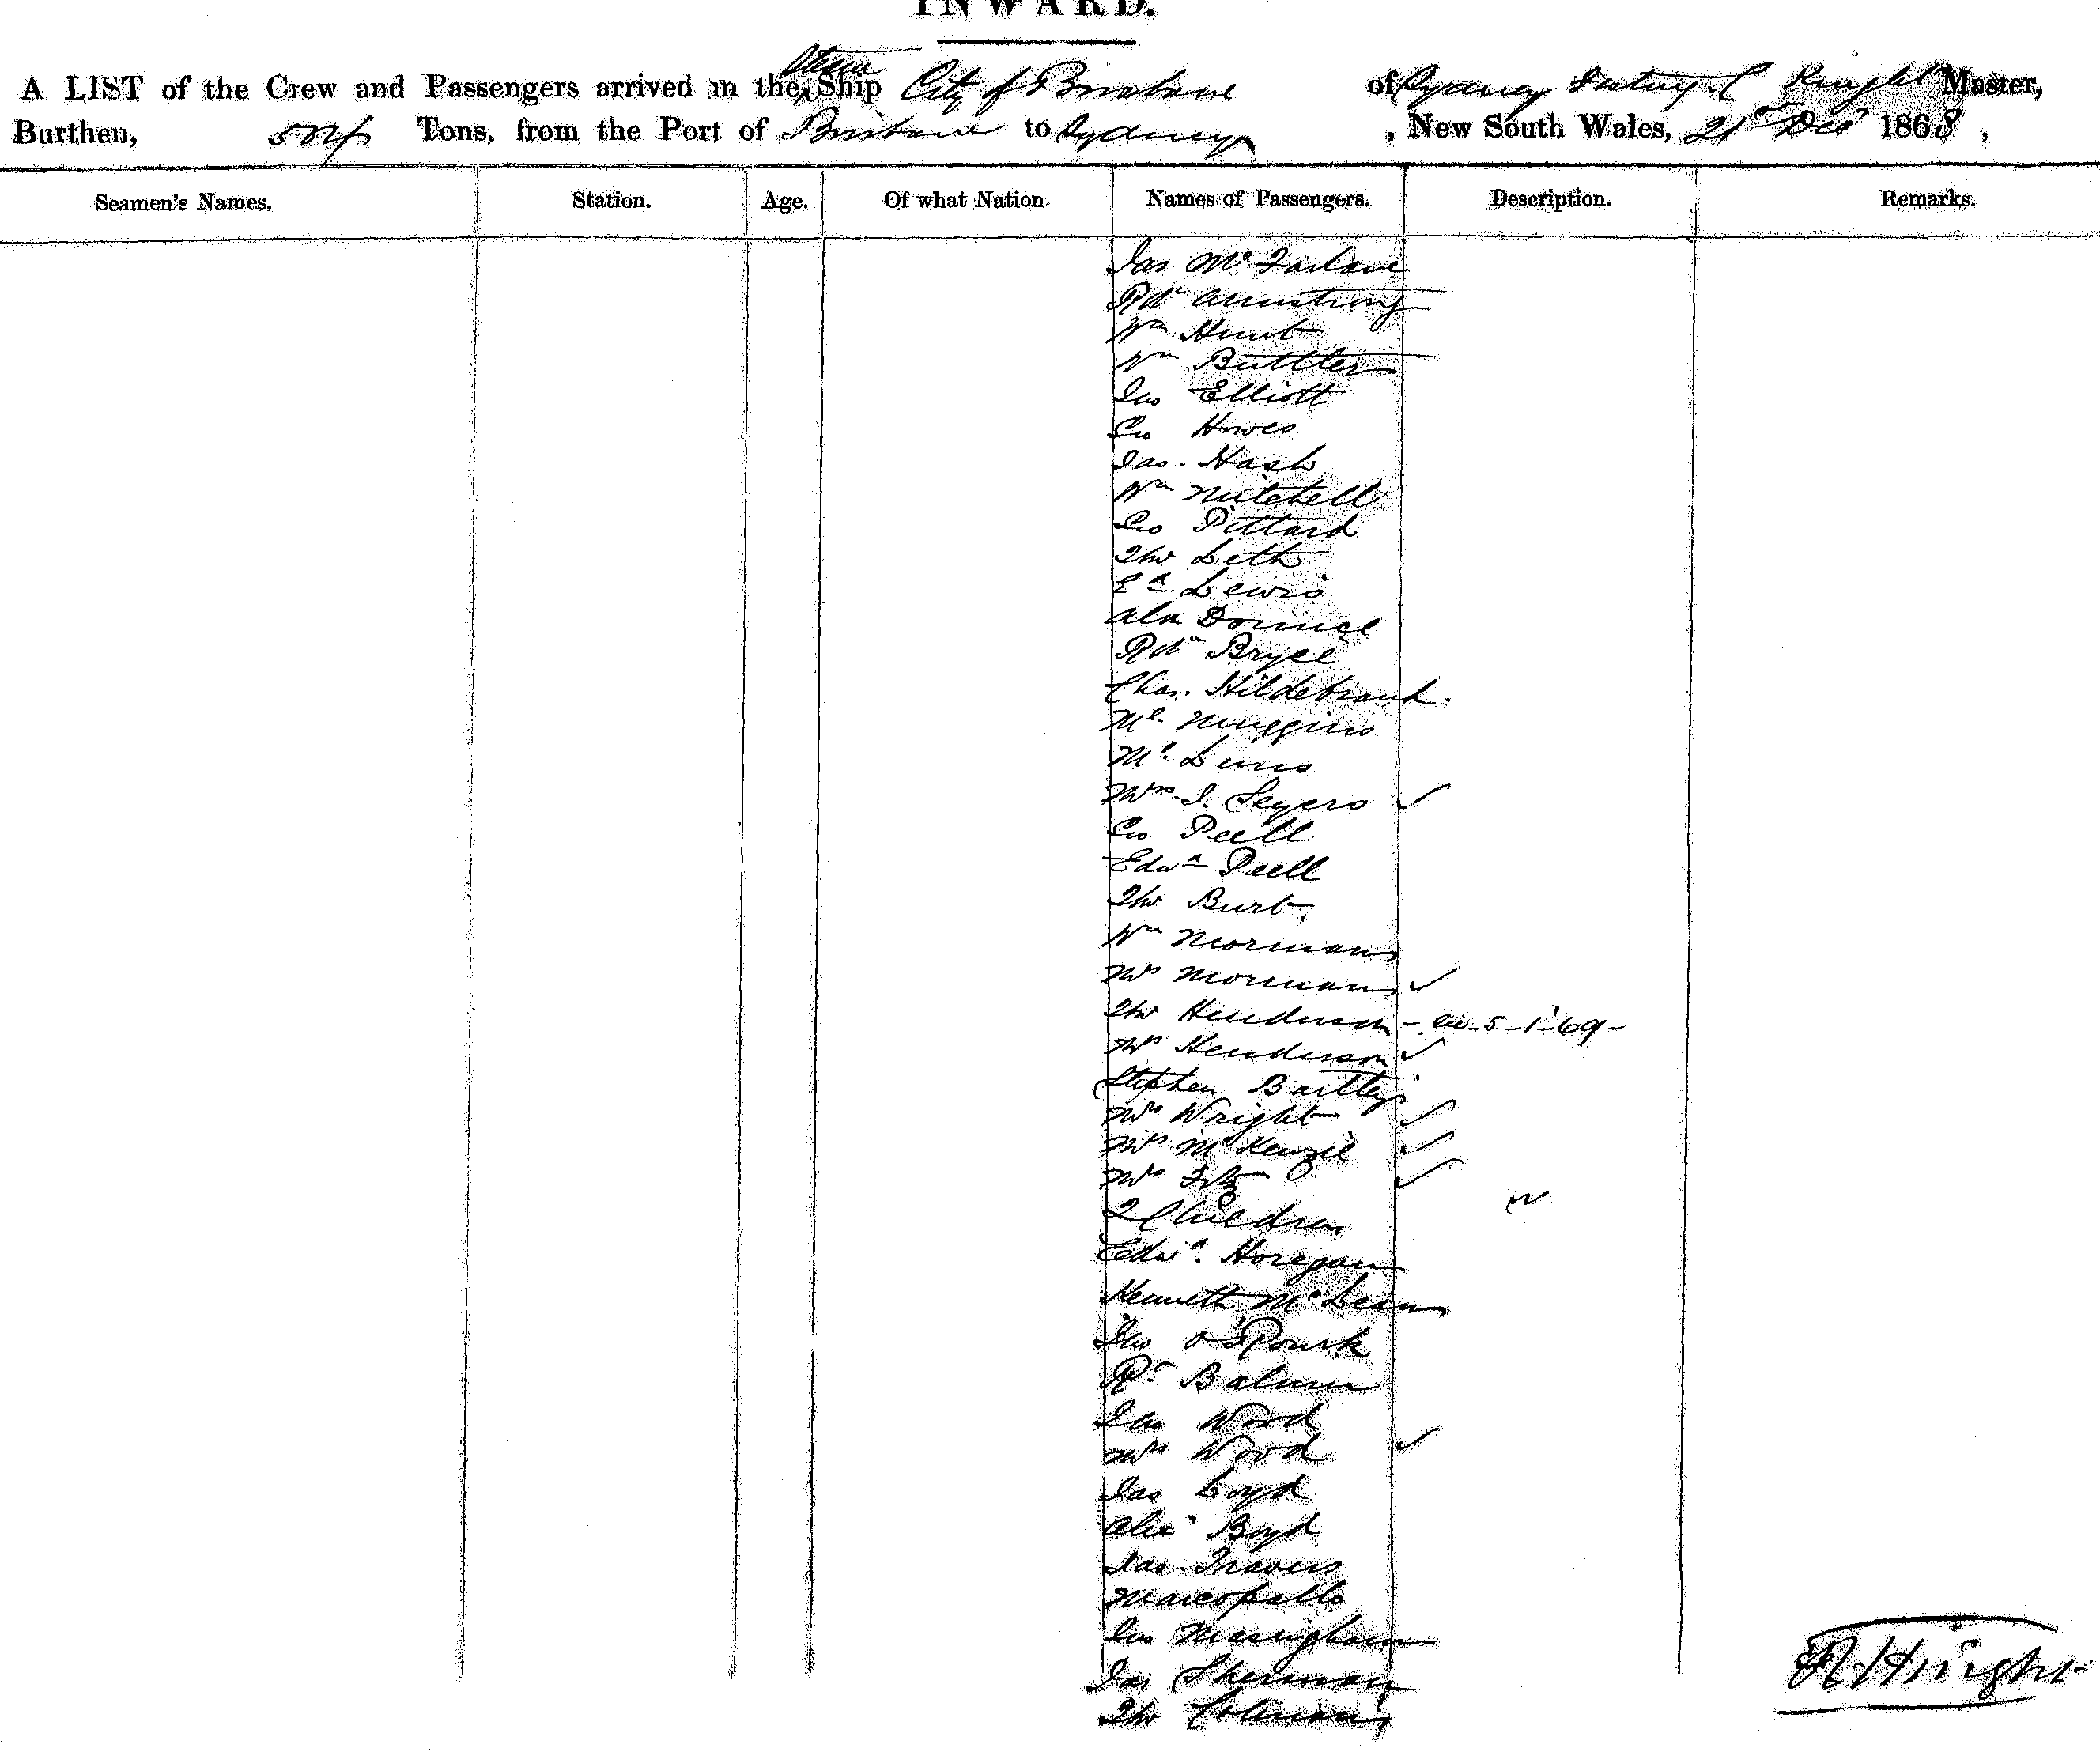 INWARD.
A LIST of the Crew and Passengers arrived in the Steam Ship City of Brisbane of Sydney Knight Master,
Burthen, 504 Tons, from the Port of Brisbane to Sydney, New South Wales, 21st Dec 1868,
Seamen's Names. Station. Age. Of what Nation. Names of Passengers. Description. Remarks.
Jas McFarlane
Rbt Armstrong
Wm Hunt
Wm Buttler
Jno Elliott
Geo Howes
Jas. Nash
Wm Mitchell
Geo Pittard
Thos Leth
Ed Lewis
Alx
Rbt Bryce
Chas. Hildebrand.
Mr. Muggins
Mr.
Mrs. J. Seyers ✓
Geo Peell
Edwd Peell
Thos Burt
Wm Morman
Mrs Morman ✓
Thos Henderson - 5-1-69-
Mrs Henderson ✓
Stephen Bartley
Mrs Wright ✓
Mrs McKenzie ✓
Mrs Fitz ✓
2 Children
Edwd. Horegan
Kenneth McLean
Jno O'Rourk
Rt
Jas Wood
Mrs Wood ✓
Jas Boyd
Alex Boyd
Jas Travers
Marcopallo
Jno Massingham
Jas Sherman
Thos Coleman
Knight